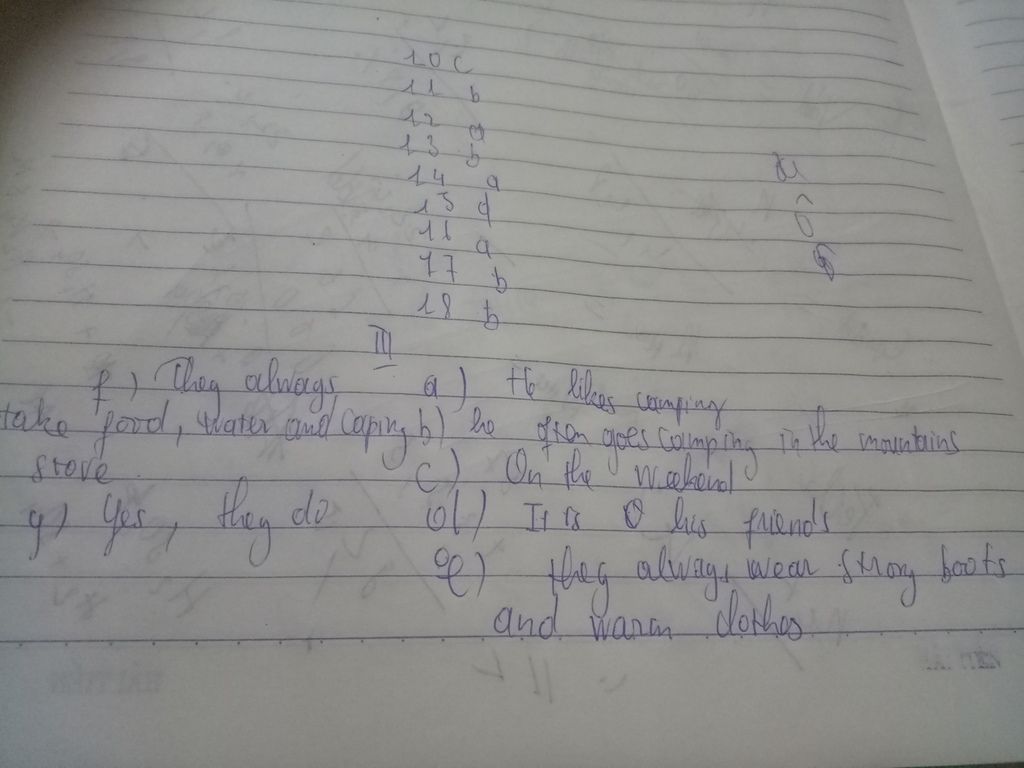 10 c
11 b
12 a
13 b
14 a
15 d
16 a
17 b
18 b
III
f) They always a) He likes camping
take food, water and caping b) he often goes camping in the mountains
stove c) On the weekend
g) Yes, they do d) It is his friends
e) they always wear strong boots
and warm clothes